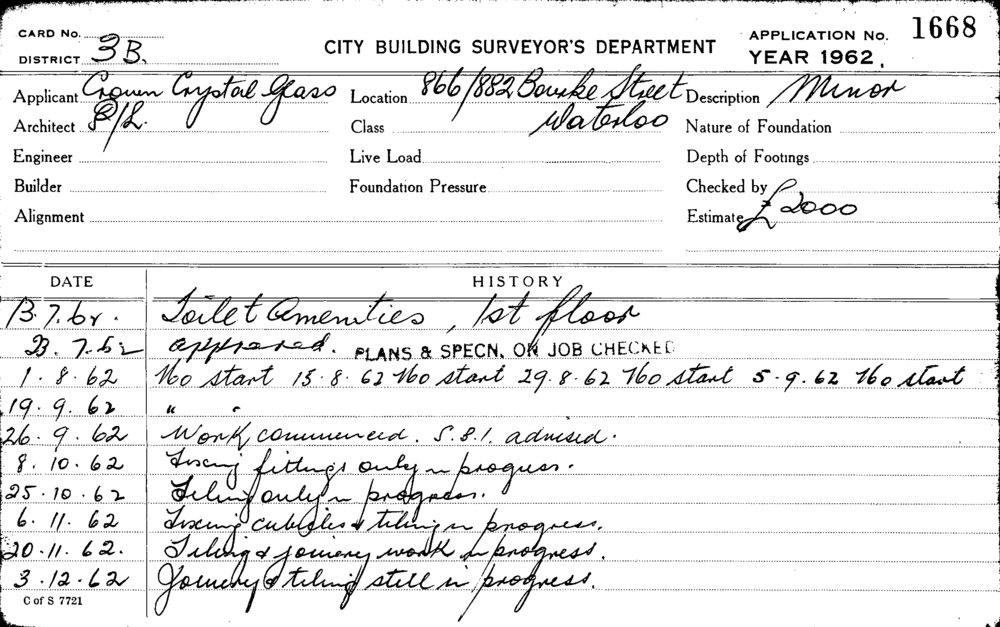 CARD No.
DISTRICT 3B.
CITY BUILDING SURVEYOR'S DEPARTMENT
APPLICATION No. 1668
YEAR 1962.
Applicant Crown Crystal Glass Location 866/882 Bourke Street Description Minor
Architect P/L. Class Waterloo Nature of Foundation
Engineer Live Load Depth of Footings
Builder Foundation Pressure Checked by
Alignment Estimate £2000
DATE HISTORY
13.7.62. Toilet Amenities, 1st floor
23.7.62 approved. PLANS & SPECN. ON JOB CHECKED
1.8.62 No start 15.8.62 No start 29.8.62 No start 5.9.62 No start
19.9.62 " "
26.9.62 Work commenced. S.B.I. advised.
8.10.62 Fixing fittings only in progress.
25.10.62 Tiling only in progress.
6.11.62 Fixing cubicles & tiling in progress.
20.11.62. Tiling & joinery work in progress.
3.12.62 Joinery & tiling still in progress.
C of S 7721